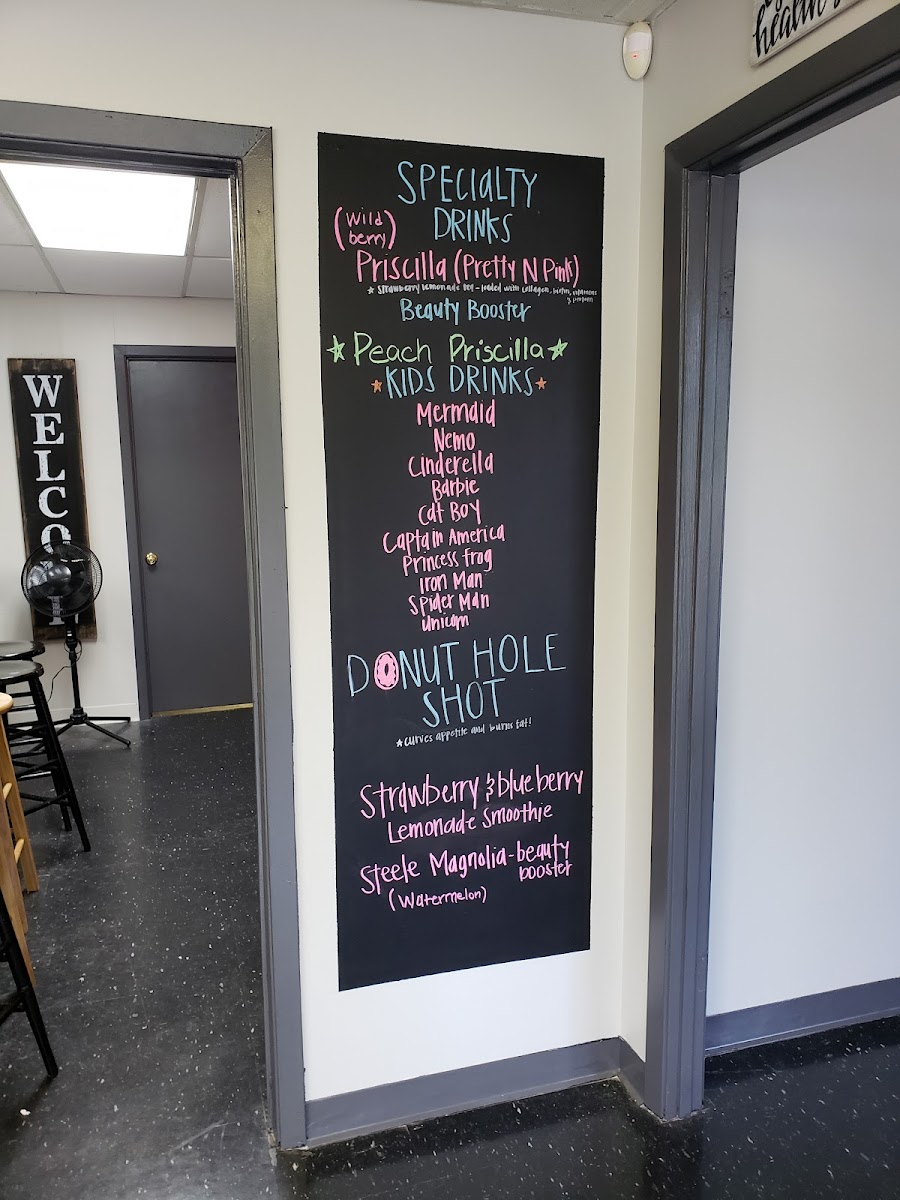 health
SPECIALTY
DRINKS
(Wild
berry)
Priscilla (Pretty N Pink)
★ Strawberry lemonade tea - loaded with collagen, biotin, vitamins
& protein
Beauty Booster
★Peach Priscilla★
★KIDS DRINKS★
Mermaid
Nemo
Cinderella
Barbie
Cat Boy
Captain America
Princess Frog
Iron Man
Spider Man
Unicorn
DONUT HOLE
SHOT
★curves appetite and burns fat!
Strawberry & blueberry
Lemonade Smoothie
Steele Magnolia-beauty
booster
(Watermelon)
WELCO